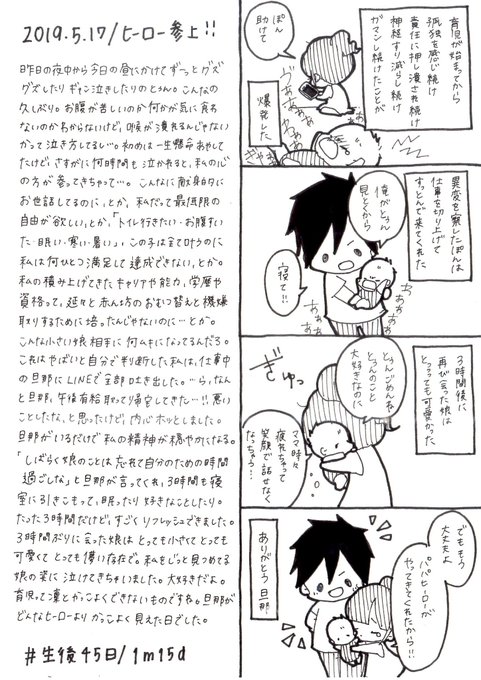 2019.5.17/ヒーロー参上!!
昨日の夜中から今日の昼にかけてずーっとグズ
グズしたりギャン泣きしたりのとぅん。こんなの
久しぶり。お腹が苦しいのか何かが気に食わ
ないのかわからないけど、喉が潰れるんじゃない
かって泣き方してるし…。初めは一生懸命あやして
たけど、さすがに何時間も泣かれると、私の心
の方が参ってきちゃって…。こんなに献身的に
お世話してるのに、とか、私だって最低限の
自由が欲しい、とか、「トイレ行きたい・お腹すい
た・眠い・寒い・暑い」、この子は全て叶うのに
私は何ひとつ満足して達成できない、とか。
私の積み上げてきたキャリアや能力、学歴や
資格って、延々と赤ん坊のおむつ替えと機嫌
取りするために培ったんじゃないのに…とか。
こんな小さい娘相手に何ムキになってるんだろ。
これはやばいと自分で判断した私は、仕事中
の旦那にLINEで全部吐き出した。…ら、なん
と旦那、午後有給取って帰宅してきた…!!悪い
ことしたな、と思ったけど、内心ホッとしました。
旦那がいるだけで私の精神が穏やかになる。
「しばらく娘のことは忘れて自分のための時間
過ごしな」と旦那が言ってくれ、3時間も寝
室に引きこもって、眠ったり好きなことしたり。
たった3時間だけど、すごくリフレッシュできました。
3時間ぶりに会った娘はとっても小さくてとっても
可愛くてとっても儚い存在で。私をじっと見つめてる
娘の姿に泣けてきちゃいました。大好きだよ。
育児って凄くかっこよくできないものですね。旦那が
どんなヒーローよりかっこよく見えた日でした。
#生後45日/1m15d
育児が始まってから
孤独を感じ続け
責任に押し潰され続け
神経すり減らし続け
ガマンし続けたことが
爆発した
ぽん
助けて
異変を察したぽんは
仕事を切り上げて
すっとんで来てくれた
俺がとぅん
見とくから
寝て!!
3時間後に
再び会った娘は
とっっっても可愛かった
ぎゅっ
とぅんごめんね
とぅんのこと
大好きなのに
ママ時々
疲れちゃって
笑顔で話せなく
なっちゃう…
でももう
大丈夫よ
パパヒーローが
やってきてくれたから!!
ありがとう 旦那